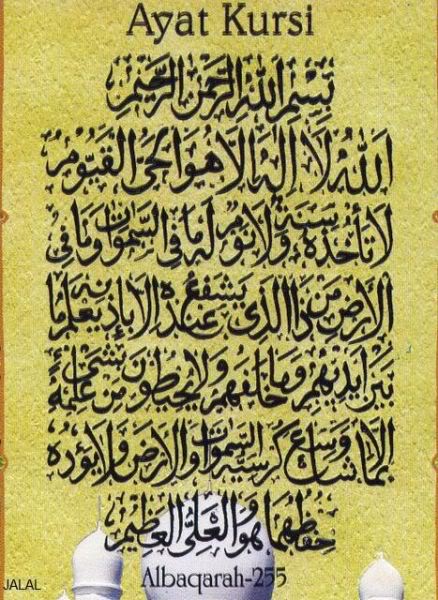 Ayat Kursi
بِسْمِ اللهِ الرَّحْمٰنِ الرَّحِيْمِ
اَللهُ لَا اِلٰهَ اِلَّا هُوَ الْحَيُّ الْقَيُّوْمُ
لَا تَأْخُذُهُ سِنَةٌ وَلَا نَوْمٌ لَهُ مَا فِي السَّمٰوَاتِ وَمَا فِي
الْاَرْضِ مَنْ ذَا الَّذِي يَشْفَعُ عِنْدَهُ اِلَّا بِاِذْنِهِ يَعْلَمُ مَا
بَيْنَ اَيْدِيْهِمْ وَمَا خَلْفَهُمْ وَلَا يُحِيْطُوْنَ بِشَيْءٍ مِنْ عِلْمِهِ
اِلَّا بِمَا شَاءَ وَسِعَ كُرْسِيُّهُ السَّمٰوَاتِ وَالْاَرْضَ وَلَا يَؤُدُهُ
حِفْظُهُمَا وَهُوَ الْعَلِيُّ الْعَظِيْمُ
Albaqarah-255
JALAL